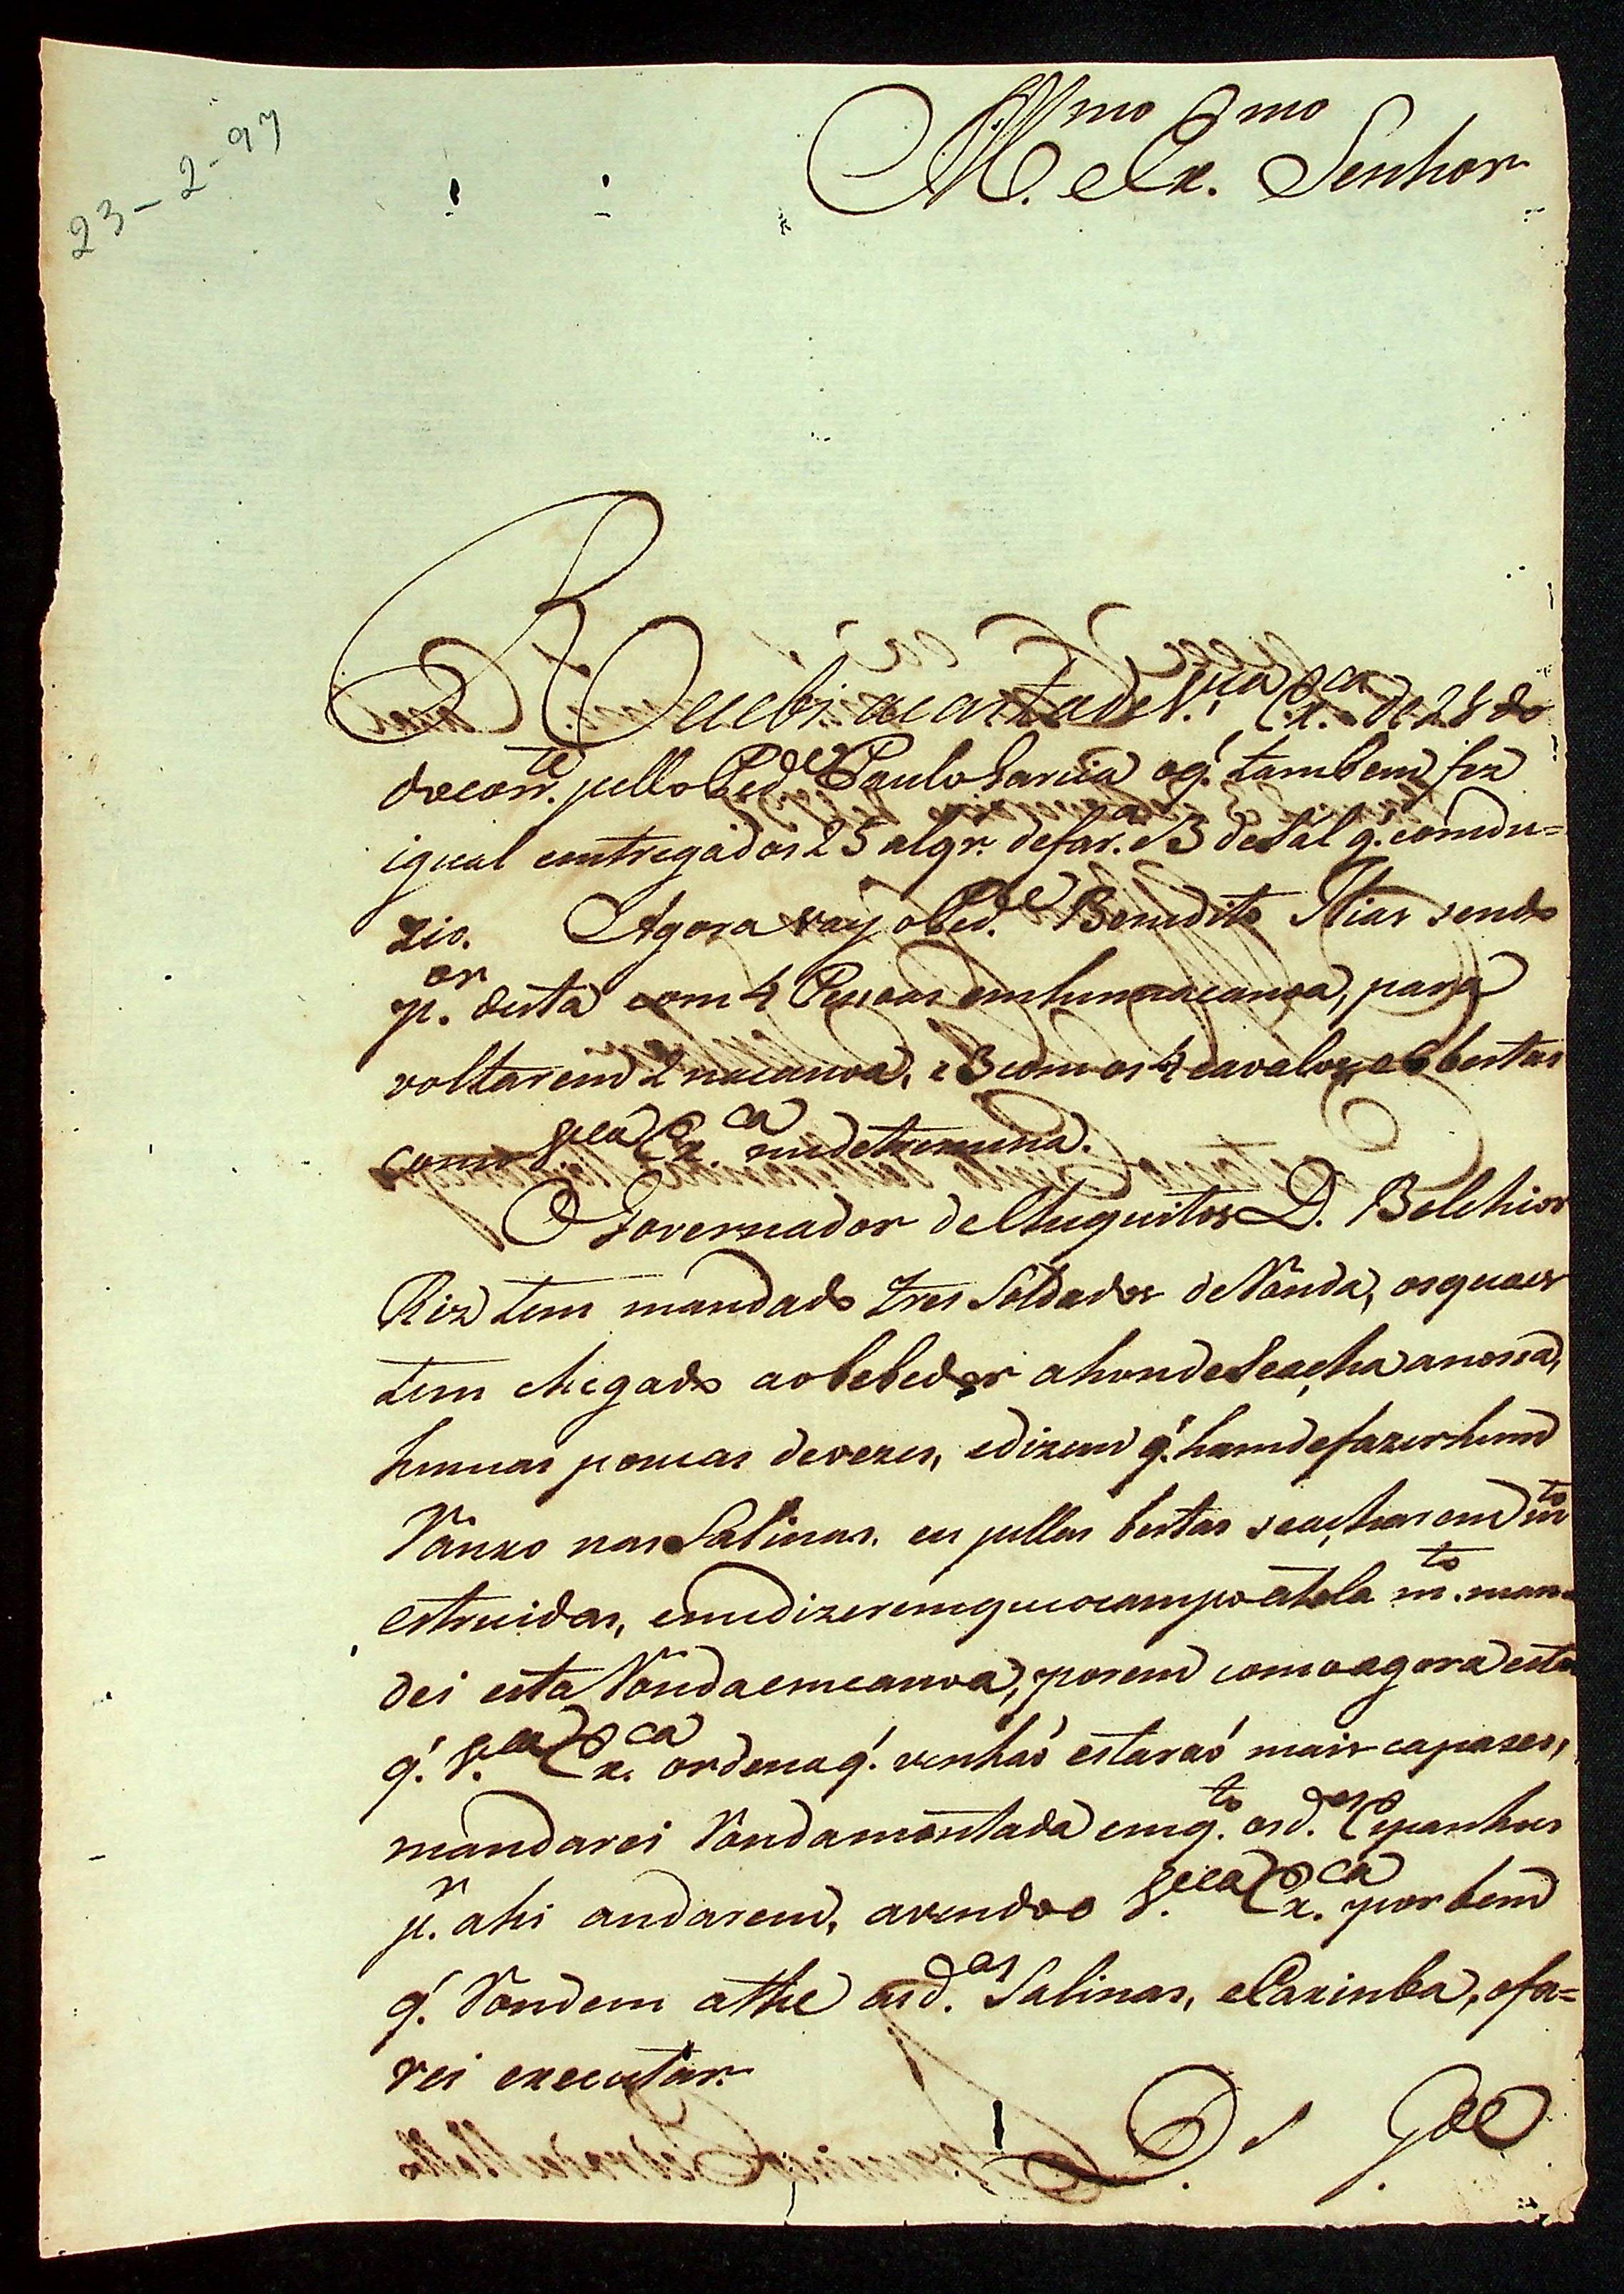 23-2-97
Ill.mo e Ex.mo Senhor
Recebi a carta de V.ucia Ex.ca de 28 do
do corr.te pello Ped.e Paulo Garcia o q.' tambem fez
igual entrega dos 25 alqr.' de far.a e 3 de Sal q.' comdu=
zio. Agora vay o Ped.e Benedito Dias sendo
p.or desta com 4 Pessoas em huma canoa, para
voltarem 2 na canoa, e 3 com os 4 cavalos e 6 bestas
como V.cia Ex.ca me detremina.
O Governador de Chuquitos D. Belchior
Riz tem mandado tres Soldados de Ronda, os quaes
tem chegado ao bebedor ahonde Se acha a nossa,
humas poucas de vezes, e dizem q.' ham de fazer hum
Ranxo nas Salinas. eu pellas bestas se acharem m.to
estruidas, e me dizerem que o campo atola m.to man-
dei esta Ronda em canoa, porem como agora esta
q.' V.cia Ex.ca ordena q.' venhaó estaraó mais capazes,
mandarei Ronda montada em q.to os d.os Espanhoes
p.r ahi andarem, avendo o V.cia Ex.ca por bem
q.' Rondem athe as d.as Salinas, e Caximba, o fa=
rei executar.
D.s G.de